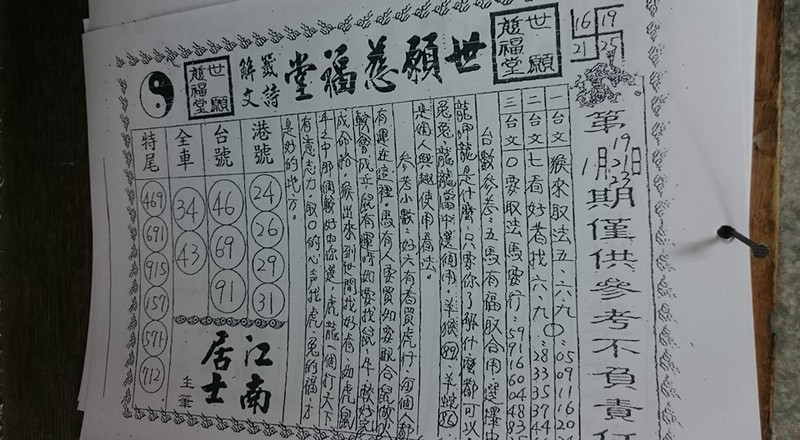 世願慈福堂
世願
慈福堂
籤詩
解文
世願
慈福堂
16 19
21 25
第
19
21
23
1月 日
期僅供參考不負責任
一台文 猴來取法五、六、九〇 05 09 11 16 20
二台文 七看好者找六、九、 28 33 35 37 44
三台文 〇要取法馬要行 59 91 16 60 04 48 83
台數參考:五馬有福取合用選擇中
龍呷龍是什麼,只要你了解什麼都可以
兔兔龍龍當中選個用,羊猴89,羊蛇
是個人興趣使用看法。
參考小數:好六有看買虎行,每個
有運近這裡,馬有人要買如要取合鼠
較會成立鼠有運時如要找鼠,牛較好
成命格,猴出來到世間找好看,如虎鼠
牛之中那個較好如你選,虎龍一個打天下
有意志力,取〇的心声找虎、兔的福,才
是妙的地方。
港號
24
26
29
31
台號
46
69
91
全車
34
43
特尾
469
691
915
157
571
712
江南
居士
主筆